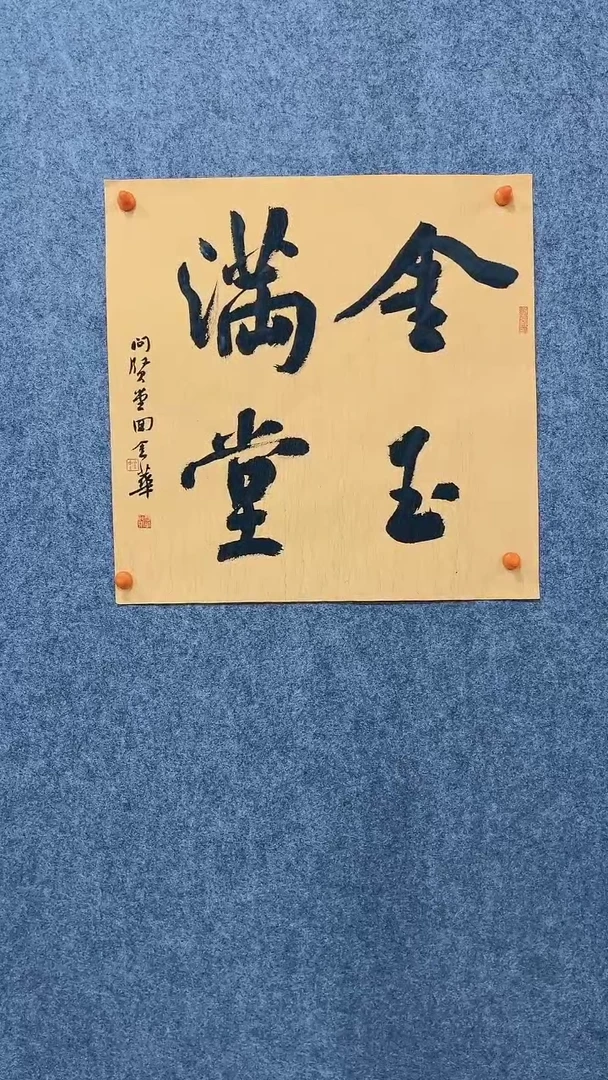 金玉
滿堂
问贤堂田金華